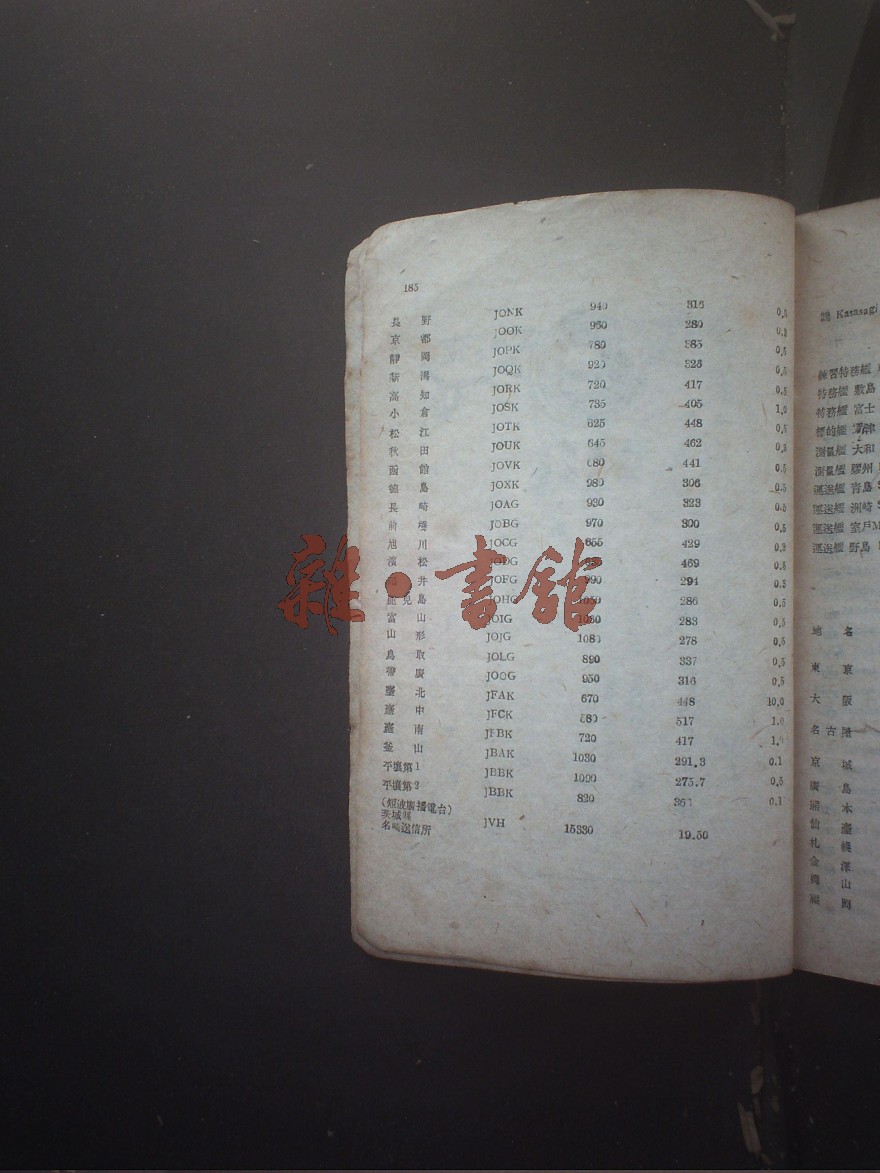 185
長野 JONK 940 316 0.5
京都 JOOK 960 280 0.3
靜岡 JOPK 780 385 0.5
新潟 JOQK 920 326 0.5
高知 JORK 720 417 0.5
小倉 JOSK 735 405 1.0
松江 JOTK 625 448 0.5
秋田 JOUK 645 462 0.3
函館 JOVK 680 441 0.5
福島 JOXK 980 306 0.5
長崎 JOAG 930 323 0.5
前橋 JOBG 970 300 0.5
旭川 JOCG 655 429 0.3
濱松 JODG 469 0.5
井 JOFG 291 0.5
鹿兒島 JOHG 1050 286 0.5
富山 JOIG 1060 283 0.5
山形 JOJG 1080 278 0.5
鳥取 JOLG 890 337 0.5
帶廣 JOOG 950 316 0.5
臺北 JFAK 670 448 10.0
臺中 JFCK 580 517 1.0
臺南 JFBK 720 417 1.0
釜山 JBAK 1030 291.3 0.1
平壤第1 JBBK 1090 275.7 0.5
平壤第2 JBBK 820 0.1
(短波廣播電台)
茨城縣
名崎送信所 JVH 15330 19.50
鵲 Kasasagi
練習特務艦
特務艦 敷島
特務艦 富士
標的艦 攝津
測量艦 大和
測量艦 膠州
運送艦 青島
運送艦 洲崎
運送艦 室戶
運送艦 野島
地名
東京
大阪
名古屋
京城
廣島
熊本
仙臺
札幌
金澤
岡山
福岡
雜·書舘